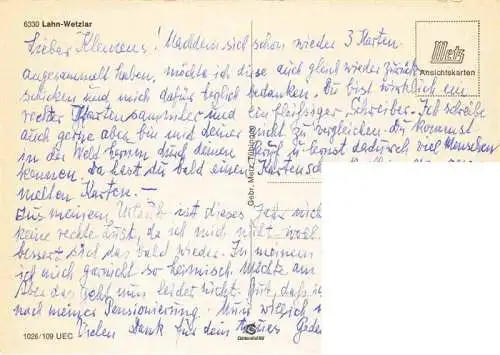 6330 Lahn-Wetzlar
Metz
Ansichtskarten
Lieber Klemens! Nachdem sich schon wieder 3 Karten
angesammelt haben, möchte ich diese auch gleich wieder zurück
schicken und mich dafür herzlich bedanken. Du bist wirklich ein
Kartensammler und ein fleißiger Schreiber. Ich schreibe
auch gerne aber bin mit deiner nicht zu vergleichen. Du kommst
in der Welt herum durch deinen und lernst dadurch viel Menschen
kennen. Da hast du bald einen Kartensch
melten Karten. —
Aus meinem Urlaub ist dieses Jahr nich
keine rechte Lust, da ich mich nicht wohl
bessert sich das bald wieder. In meinem
ich mich garnicht so heimisch. Möchte am
Aber das geht nun leider nicht. Gut, daß i
nach meiner Pensionierung.
Vielen Dank für dein Geden
Gebr. Metz Tübingen
1026/109 UEC